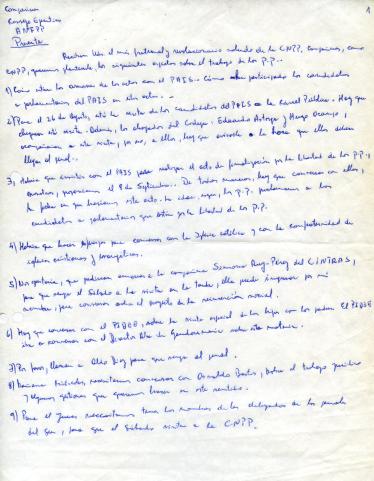 Compañeros
Consejo Ejecutivo
ANFPP
Presente
1
Reciban Uds el más fraternal y revolucionario saludo de la CNPP, compañeros, como
CNPP, queremos plantearle, los siguientes aspectos sobre el trabajo de los P.P..
1) Como están los avances de los actos con el PAIS. Cómo han participado los candidatos
a parlamentarios del PAIS en estos actos.
2) Para el 26 de Agosto, está la visita de los candidatos del PAIS a la Cárcel Pública. Hay que
chequear esta visita. Además, los abogados del Codepu. Eduardo Astorga y Hugo Ocampo,
acompañaran a esta visita, por eso, a ellos, hay que avisarle a la hora que ellos deben
llegar al penal.
3) Habría que insistir con el PAIS para realizar el acto de finalización por la libertad de los P.P.,
nosotros, proponemos el 9 de Septiembre. De todas maneras, hay que conversar con ellos,
la fecha en que haríamos este acto. La idea, es que, los P.P. proclamemos a los
candidatos a parlamentarios que estén por la libertad de los P.P.
4) Habría que hacer esfuerzos para conversar con la Iglesia católica y con la confraternidad de
iglesias cristianas y evangélicas.
5) Nos gustaría, que pudieran avisarle a la compañera Ruy-Pérez del CINTRAS,
para que venga el Sábado a la visita en la tarde, ella puede ingresar por mi
nombre, para conversar sobre el proyecto de la recreación
6) Hay que conversar con el PIDEE, sobre la visita especial de los hijos con los padres. El PIDEE
iba a conversar con el Director de Gendarmería sobre esta materia.
7) Por favor, llamar a Aldo Díaz para que venga al penal.
8) necesitamos conversar con Osvaldo sobre el trabajo jurídico
y algunas gestiones que queremos hacer en este sentido.
9) Para el Jueves necesitamos tener los nombres de los delegados de los penales
del sur, para que el Sábado visite a la CNPP.